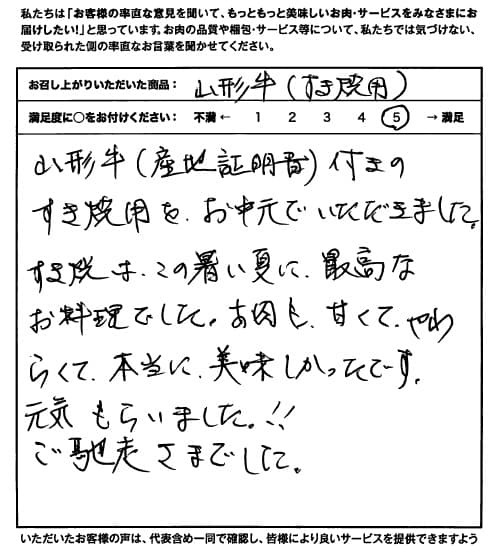 私たちは「お客様の率直な意見を聞いて、もっともっと美味しいお肉・サービスをみなさまにお
届けしたい!」と思っています。お肉の品質や梱包・サービス等について、私たちでは気づけない、
受け取られた側の率直なお言葉を聞かせてください。
お召し上がりいただいた商品: 山形牛(すき焼用)
満足度に○をお付けください: 不満 ← 1 2 3 4 5 → 満足
山形牛(産地証明書)付きの
すき焼用を、お中元でいただきました。
すき焼は、この暑い夏に、最高な
お料理でした。お肉も、甘くて、やわ
らくて、本当に、美味しかったです。
元気もらいました。!!
ご馳走さまでした。
いただいたお客様の声は、代表含め一同で確認し、皆様により良いサービスを提供できますよう